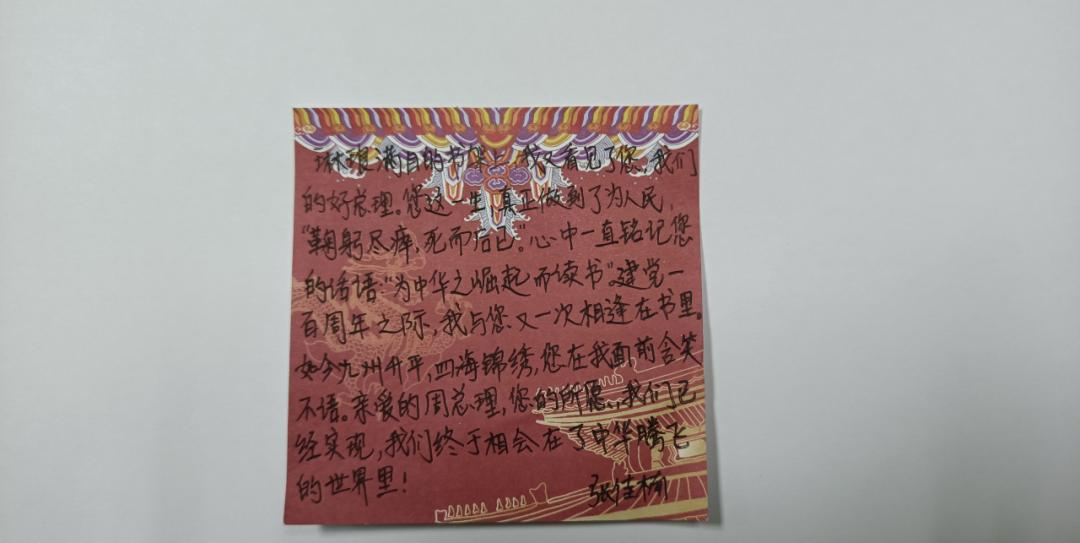 琳琅满目的书架上,我又看见了您,我们
的好总理。您这一生,真正做到了为人民,
“鞠躬尽瘁,死而后已。”心中一直铭记您
的话语:“为中华之崛起而读书”。建党一
百周年之际,我与您又一次相逢在书里。
如今九州升平,四海锦绣,您在我面前含笑
不语。亲爱的周总理,您的所愿,我们已
经实现,我们终于相会在了中华腾飞
的世界里!
张佳榆